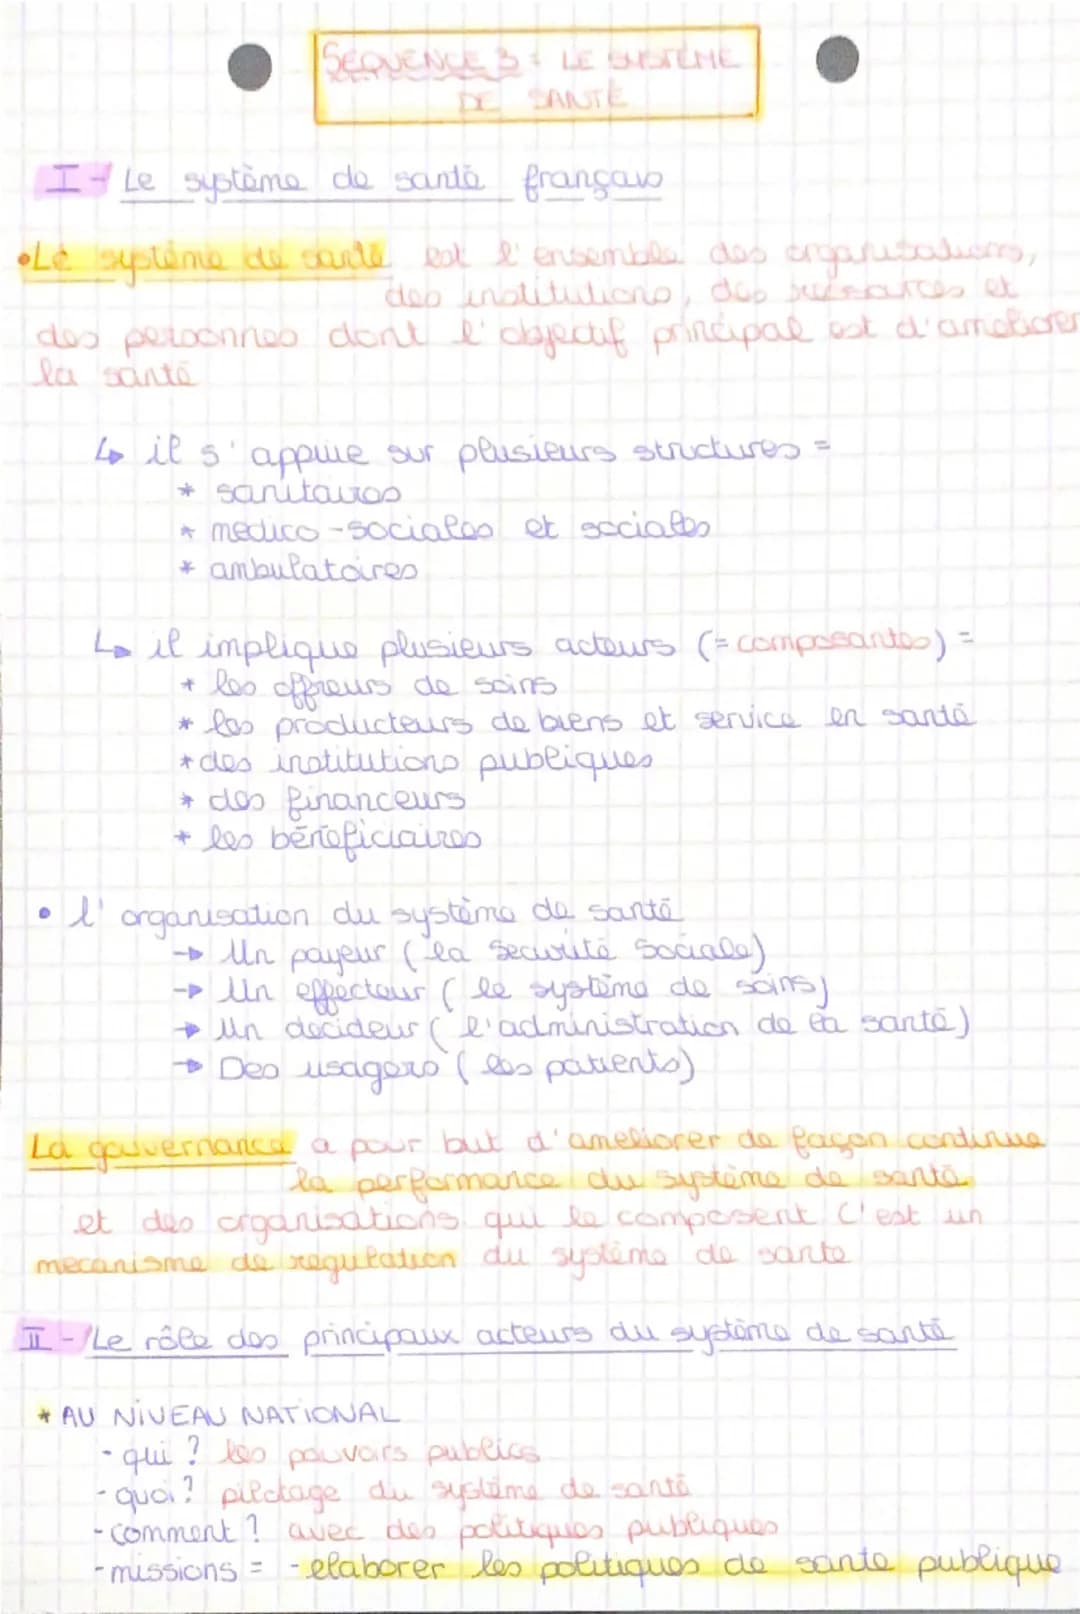 SEQUENCE 3 : LE SYSTEME
DE SANTE
I - Le système de santé français
•Le système de santé est l'ensemble des organisations,
des institutions, des ressources et
des personnes dont l'objectif principal est d'améliorer
la santé
↳ il s'appuie sur plusieurs structures =
* sanitaires
* medico-sociales et sociales
* ambulatoires
↳ il implique plusieurs acteurs (= composantes) =
* les offreurs de soins
* les producteurs de biens et service en santé
* des institutions publiques
* des financeurs
* les bénéficiaires
• l'organisation du système de santé
→ Un payeur (la Securité Sociale)
→ Un effecteur (le système de soins)
→ Un decideur (l'administration de la santé)
→ Des usagers (les patients)
La gouvernance a pour but d'ameliorer de façon continue
la performance du système de santé
et des organisations qui le composent C'est un
mecanisme de regulation du système de sante
II - Le rôle des principaux acteurs du système de santé
* AU NIVEAU NATIONAL
- qui ? les pouvoirs publics
- quoi ? pilotage du système de santé
- comment ? avec des politiques publiques
- missions = - elaborer les politiques de sante publique